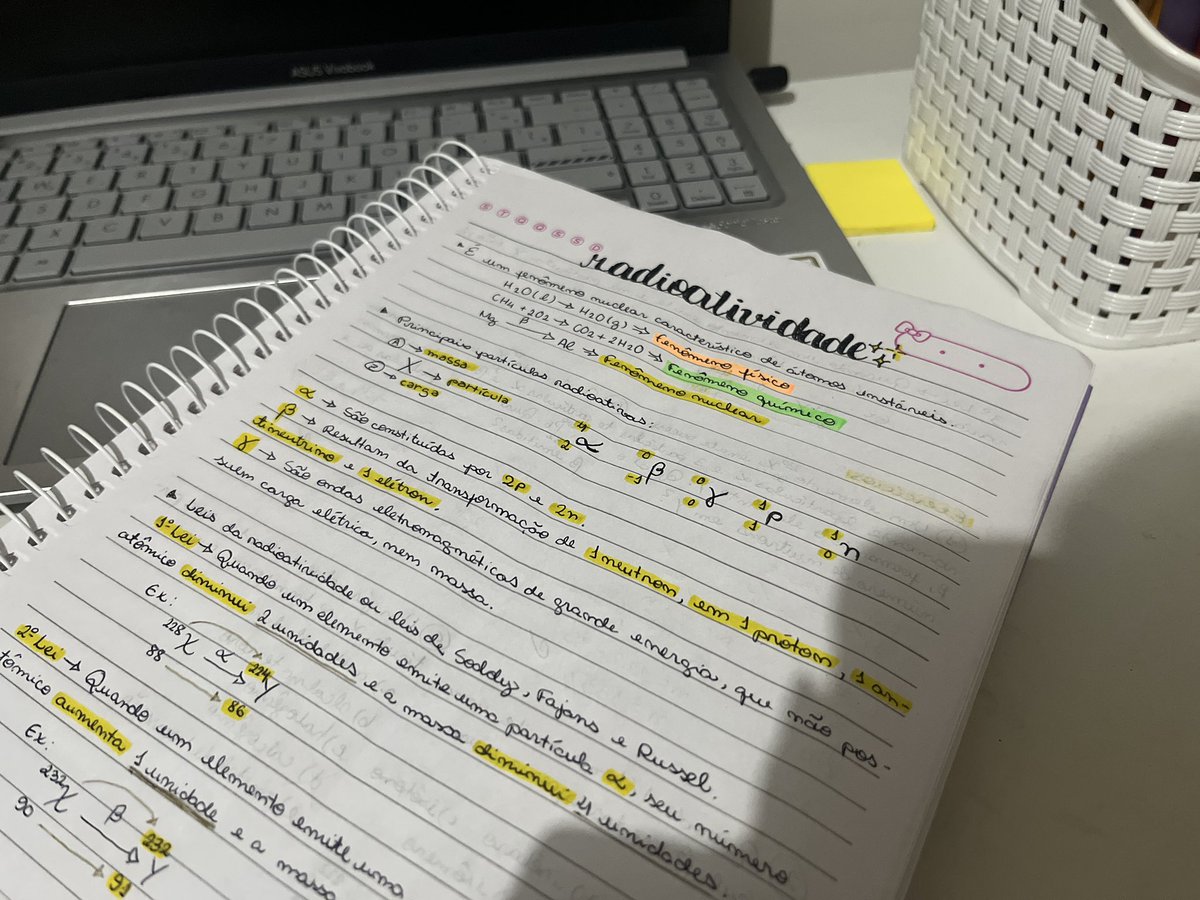 ASUS Vivobook
S T Q Q S S D
radioatividade
▸ É um fenômeno nuclear característico de átomos instáveis.
H2O(l) → H2O(g) → Fenômeno físico
CH4 + 2O2 → CO2 + 2H2O → Fenômeno químico
Mg β → Al → Fenômeno nuclear
▸ Principais partículas radioativas:
① → massa
X → partícula
② → carga
4 2 α 0 -1 β 0 0 γ 1 1 p 1 0 n
α → São constituídas por 2p e 2n.
β → Resultam da transformação de 1 neutron, em 1 próton, 1 an-
tineutrino e 1 elétron.
γ → São ondas eletromagnéticas de grande energia, que não pos-
suem carga elétrica, nem massa.
▸ Leis da radioatividade ou leis de Soddy, Fajans e Russel.
1º Lei → Quando um elemento emite uma partícula α, seu número
atômico diminui 2 unidades e a massa diminui 4 unidades.
Ex:
228 X α 224 Y
88 → 86
2º Lei → Quando um elemento emite uma
tômico aumenta 1 unidade e a massa
Ex:
232 X β 232 Y
90 → 91